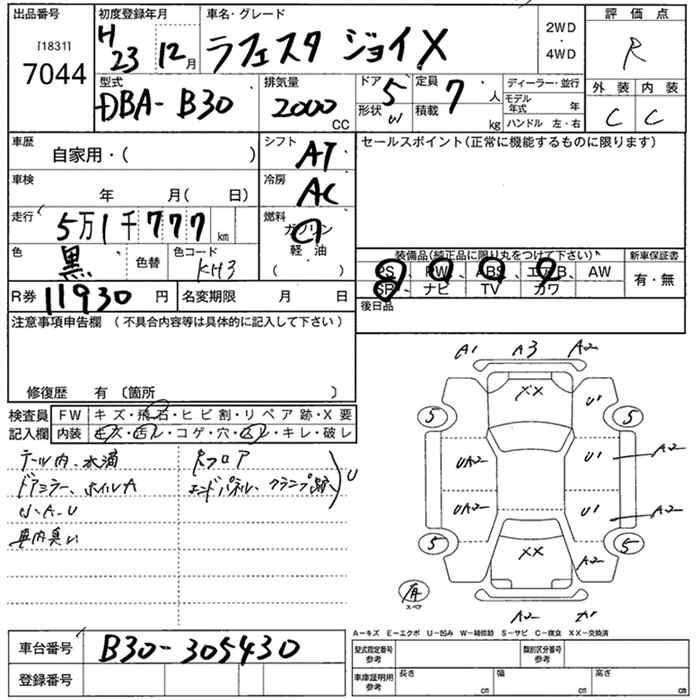 出品番号
[1831]
7044
初度登録年月
H23 12月
車名・グレード
ラフェスタ ジョイX
2WD
・
4WD
評価点
R
型式
DBA-B30
排気量
2000
CC
ドア 5
形状
定員 7人
積載 kg
ディーラー・並行
モデル年式 年
ハンドル 左・右
外装 内装
C C
車歴
自家用・( )
シフト
AT
セールスポイント(正常に機能するものに限ります)
車検
年 月( 日)
冷房
AC
走行
5万1千777km
燃料
ガソリン
軽・油
( )
色
黒
色替
色コード
KH3
装備品(純正品に限り丸をつけて下さい)
PS PW ABS エアB AW
SR ナビ TV カワ
新車保証書
有・無
R券 11930円
名変期限 月 日
後日品
注意事項申告欄 (不具合内容等は具体的に記入して下さい)
修復歴 有 〔箇所 〕
検査員
記入欄
FW キズ・飛石・ヒビ割・リペア跡・X要
内装 キズ・汚レ・コゲ・穴・凹レ・キレ・破レ
テール内、水滴
ドアミラー、ホイルA
小A-U
車内臭い
Rフロア
エンドパネル、クランプ跡
U
A1 A3 A2
XX
U1
5 5
UA2 U1 A2
UA2 U1 A2
5 5
XX
A2
有
スペア
A2
A-キズ E-エクボ U-凹み W-補修跡 S-サビ C-腐食 XX-交換済
車台番号 B30-305430
登録番号
型式指定番号
参考
類別区分番号
参考
車庫証明用
参考
長さ cm
幅 cm
高さ cm